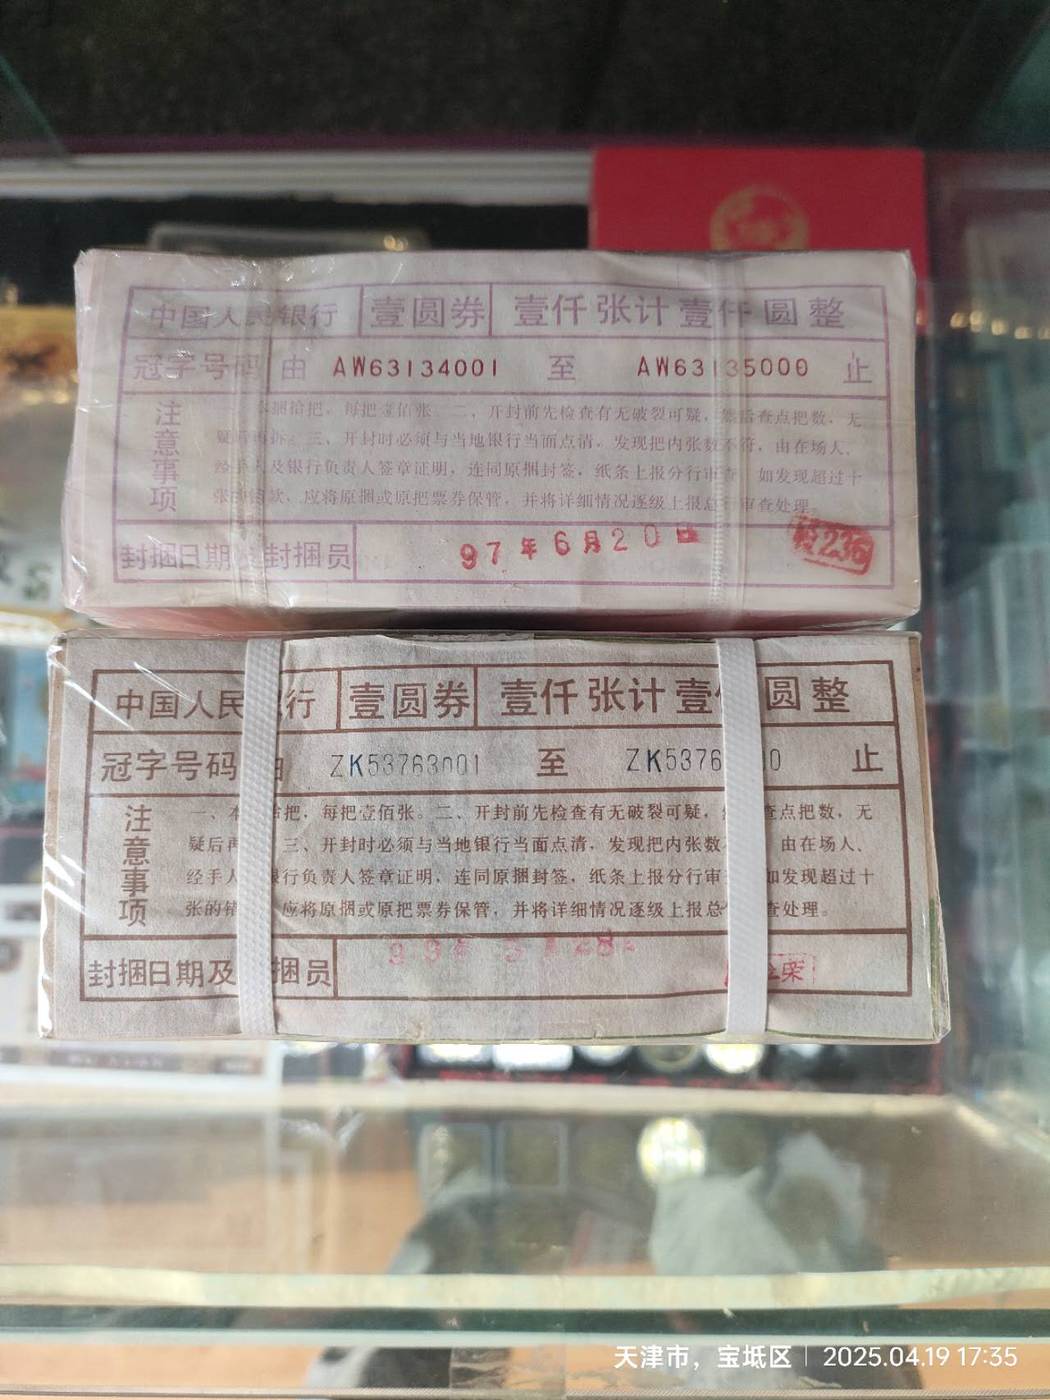 中国人民银行 壹圆券 壹仟张计壹仟圆整
冠字号码 由 AW63134001 至 AW63135000 止
注意事项
本捆拾把，每把壹佰张。二、开封前先检查有无破裂可疑，然后查点把数，无
疑后再拆。三、开封时必须与当地银行当面点清，发现把内张数不符，由在场人、
经手人及银行负责人签章证明，连同原捆封签，纸条上报分行审查，如发现超过十
张的错款，应将原捆或原把票券保管，并将详细情况逐级上报总行审查处理。
封捆日期及封捆员 97年6月20日 236
中国人民行 壹圆券 壹仟张计壹圆整
冠字号码 ZK53763001 至 ZK5376 0 止
注意事项
一、本把，每把壹佰张。二、开封前先检查有无破裂可疑，查点把数，无
疑后再 三、开封时必须与当地银行当面点清，发现把内张数 由在场人、
经手人 银行负责人签章证明，连同原捆封签，纸条上报分行审 如发现超过十
张的错 应将原捆或原把票券保管，并将详细情况逐级上报总 查处理。
封捆日期及捆员 99年 28 荣
天津市，宝坻区 | 2025.04.19 17:35